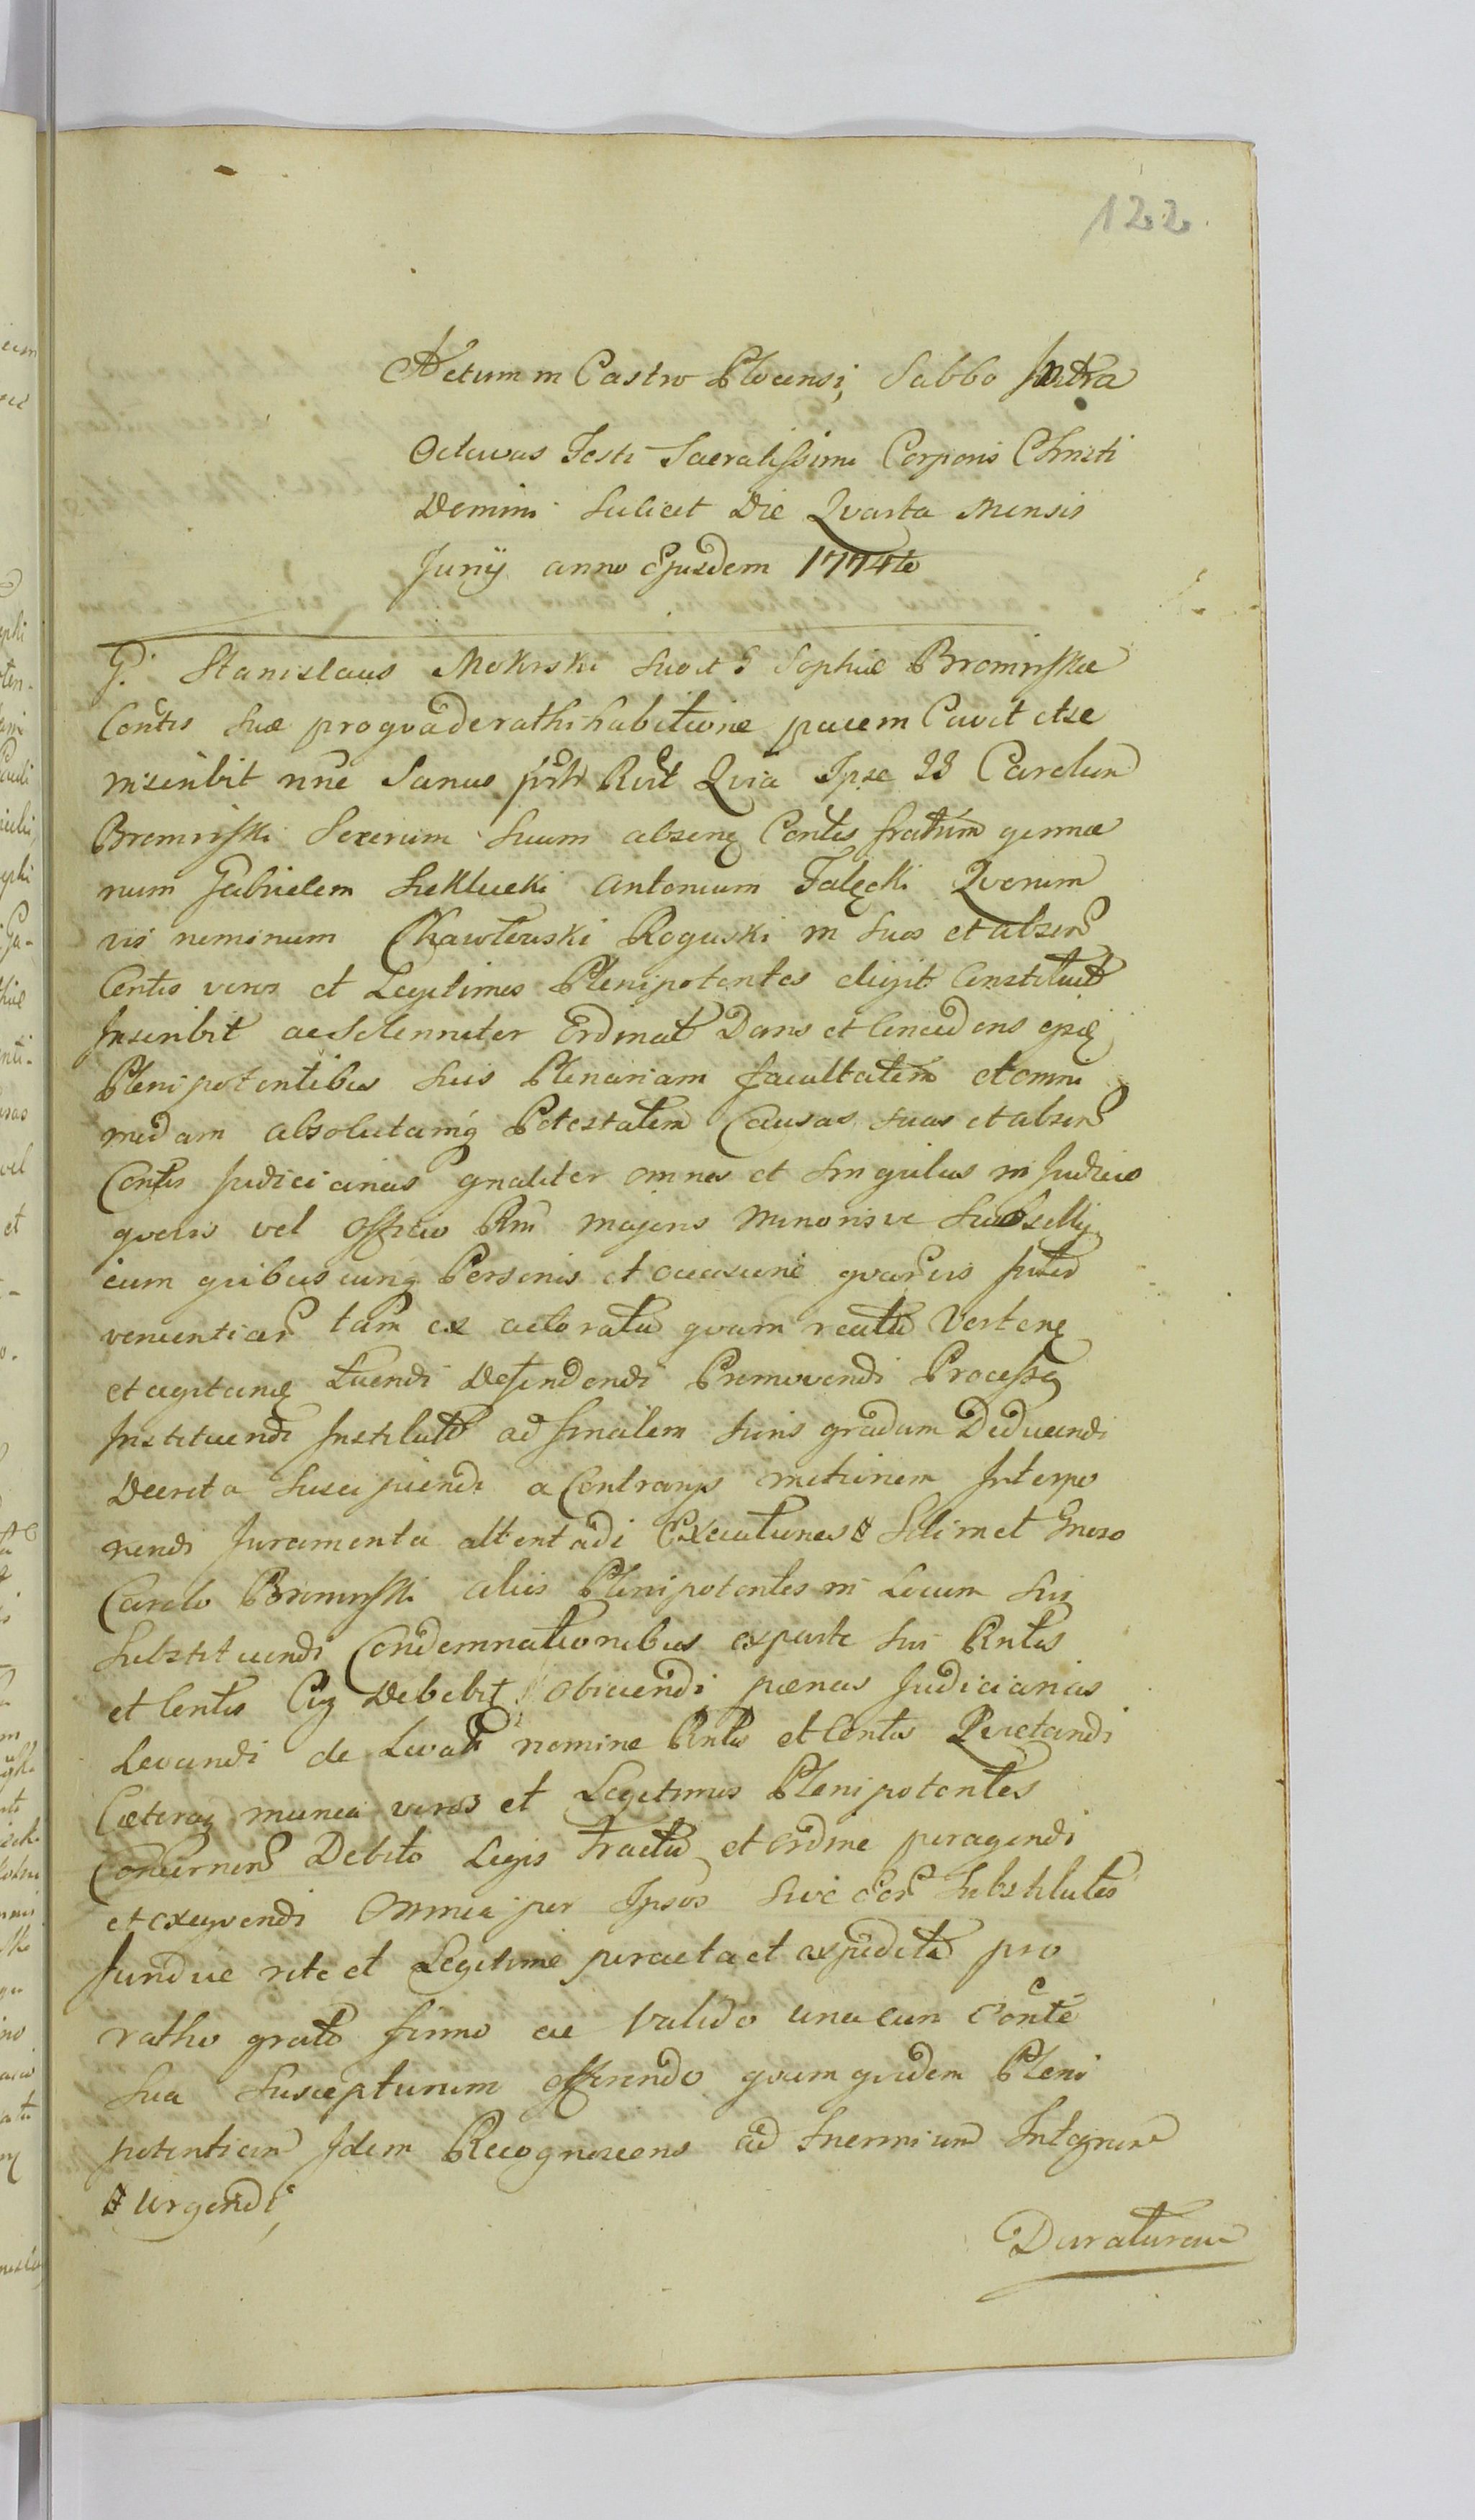 122
Actum in Castro Plocensi, Sabbo Intra
Octavas Festi Sacratissimi Corporis Christi
Domini Scilicet Die Qvarta Mensis
Junij anno Ejusdem 1774to
G. Stanislaus Mokrski Suo et G Sophiæ Brominskæ
Contis Suæ pro qva de rathihabitione pacem Cavit et se
inscribit nne Sanus Qvia Ipse GG Carolum
Brominski Socerum Suum absenq Contis fratrim germa
num Gabrielem Sieklucki Antonium Falęcki Qvorum
vis nominum Chawłowski Roguski in Suos et absen
Contis veros et Legitimos Plenipotentes eligit Constituit
Inscribit ac Solenniter Ordinat Dans et Concedens
Plenipotentibus Suis Plenariam facultatem et omni
modam absolutamq Potestatem Causas Suas et absen
Contis Judiciarias gnaliter omnes et Singulas in Judicio
qvovis vel Officio Rni Majoris Minorisve Subsellij
cum qvibuscunq Personis et occasione qvarvis
venientiar tam ex actoratu qvam reatu Verten
et agitan Tuendi Defendendi Promovendi Process
Instituendi Institut ad finalem Juris gradum Deducendi
Decreta Suscipiendi a Contrarijs motionem Interpo
nendi Juramenta attentadi Executiones # Soli met Gneroso
Carolo Brominski alios Plenipotentes in Locum Sui
Substituendi Condemnationibus ex parte Sui Rntis
et Contis Cuj Debebit Obiiciendi pænas Judiciarias
Levandi de Levat nomine Rntis et Contis Qvietandi
Cæteraq munia veros et Legitimos Plenipotentes
Concernen Debito Legis tractu et ordine peragendi
et exeqvendi Omnia per Ipsos Sive eor Substitutos
Juridice rite et Legitime peracta et expedita pro
ratho grato firmo ac valido una cum Conte
Sua Suscepturum offerendo qvam qvidem Pleni
potentiam Idem Recognoscens ad Triennium Integrum
# Urgendi,
Duraturam